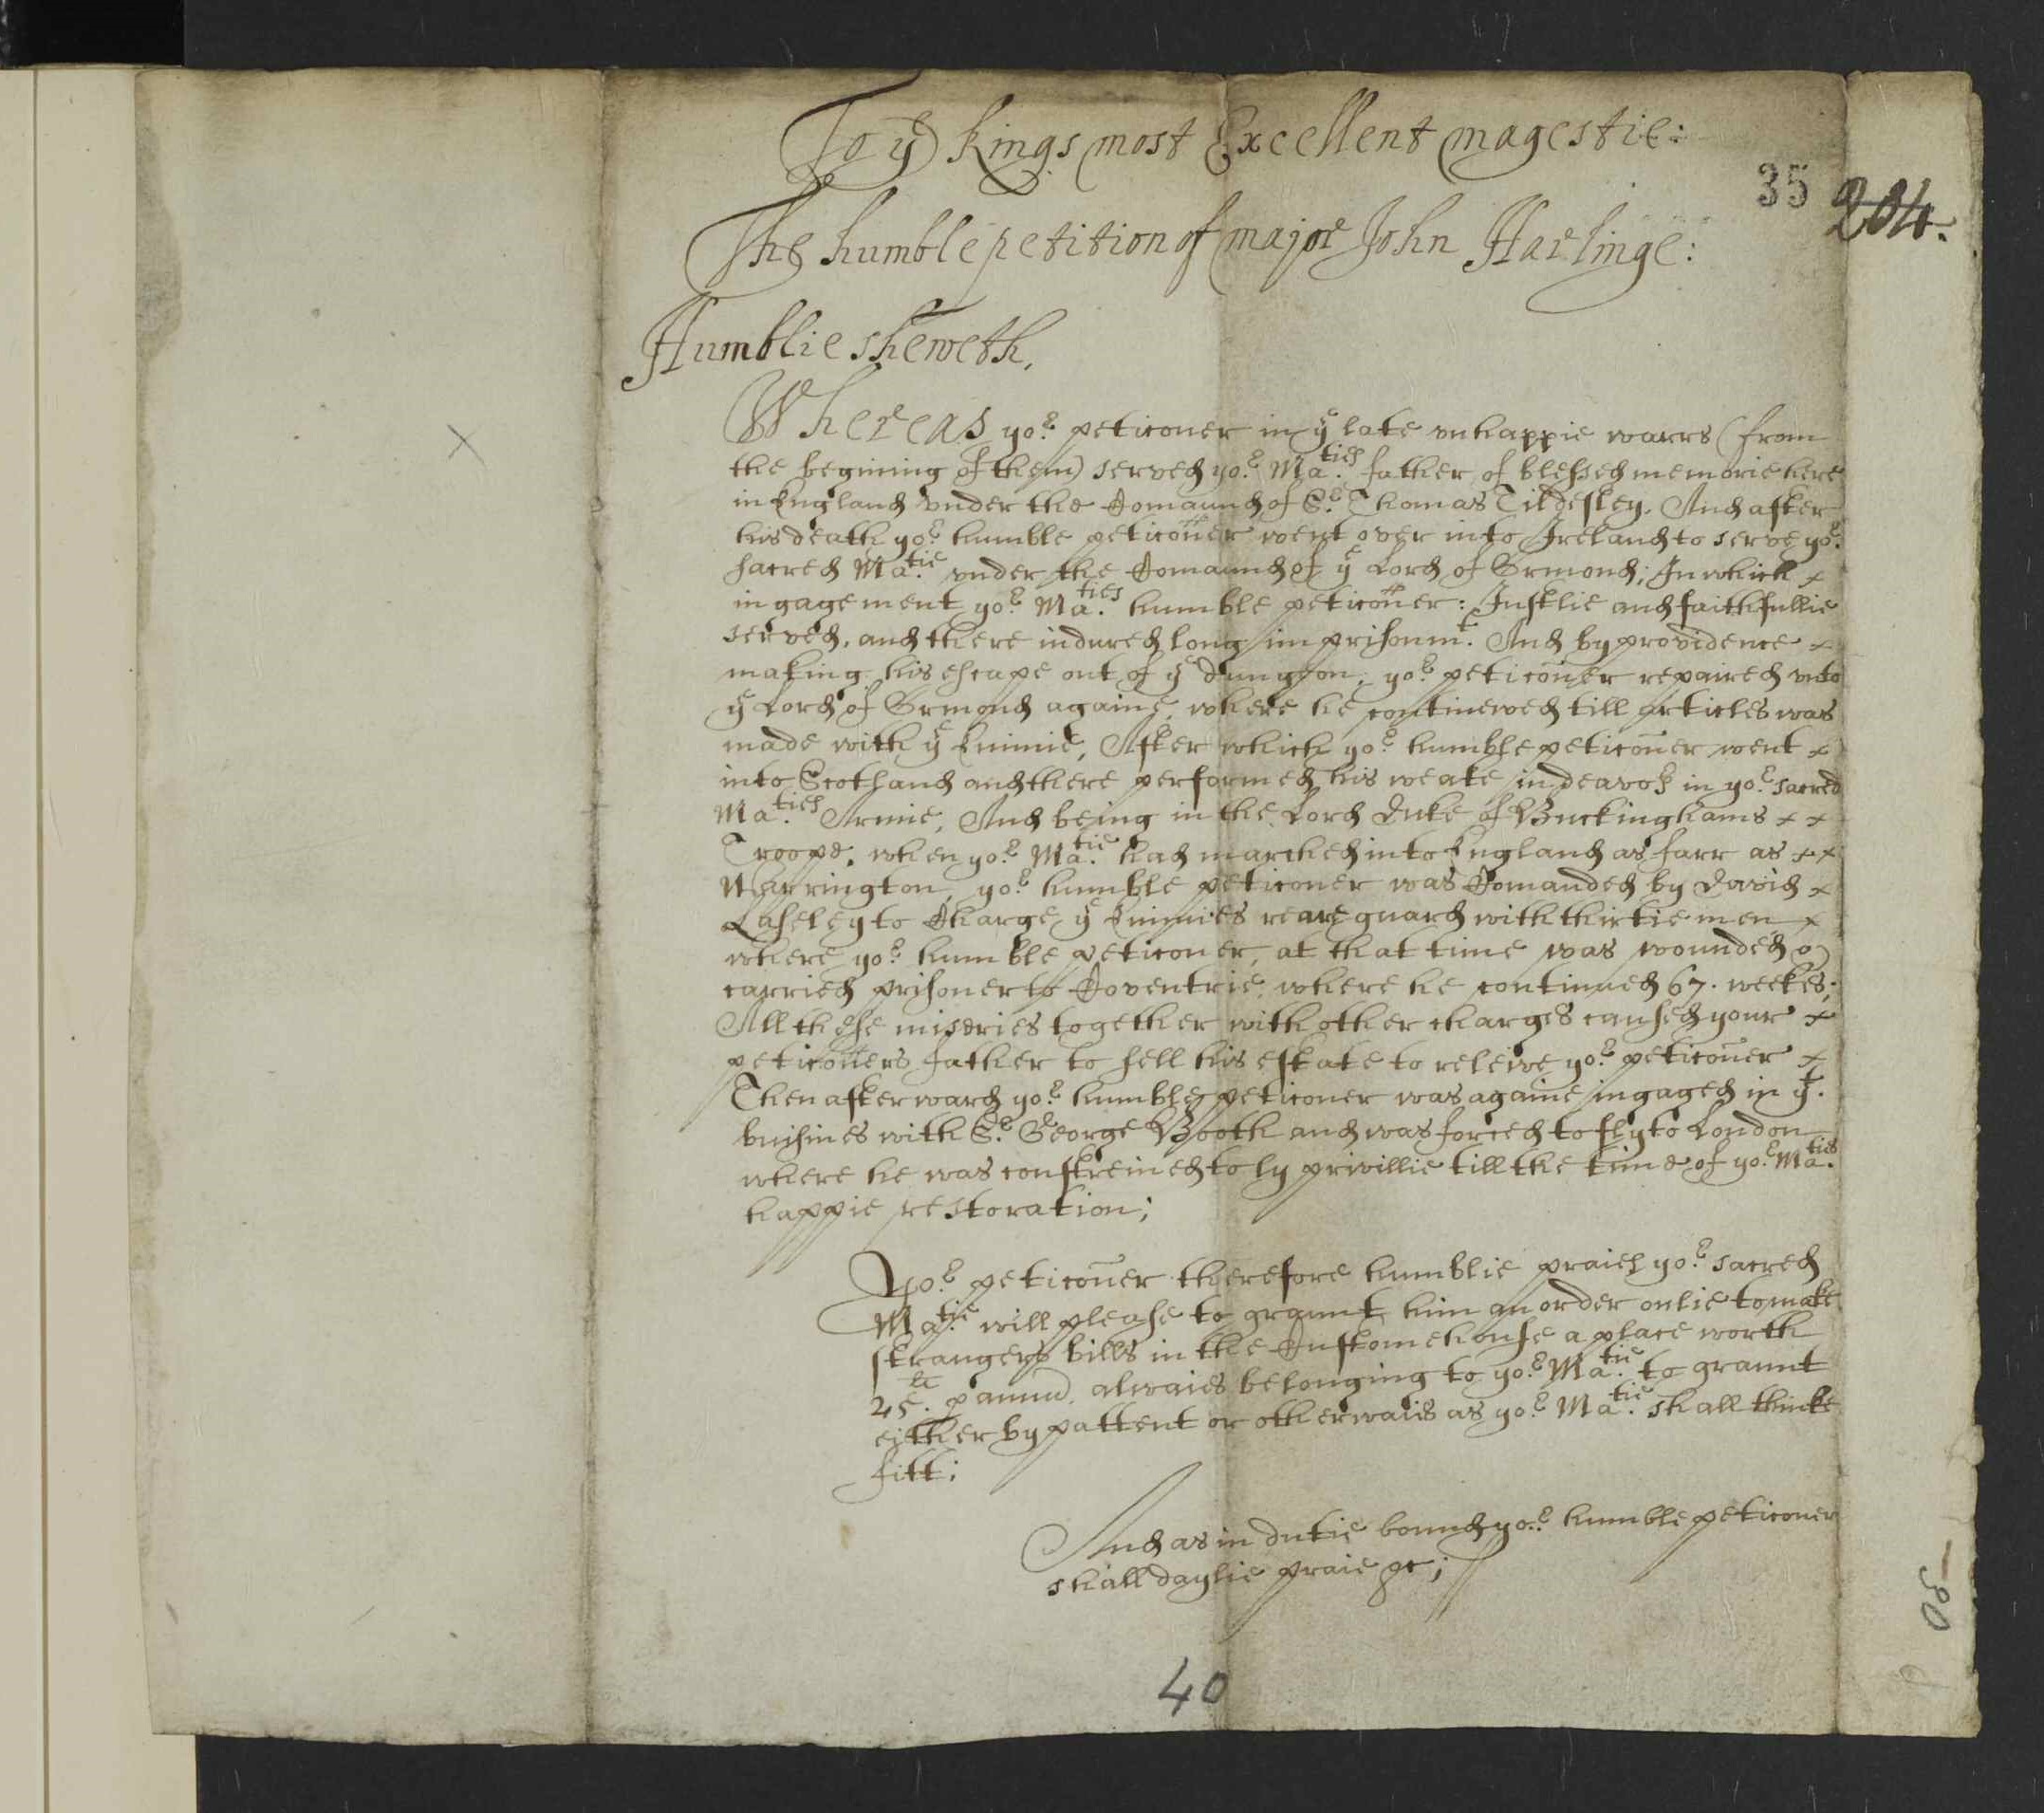 To ye Kings most Excellent magestie:
35
204.
The humble petition of major John Harlinge:
Humblie sheweth,
Whereas yor peticoner in ye late vnhappie warrs (from
the begining of them) served yor Maties father of blessed memorie here
in England vnder the Comaund of Sr Thomas Tildesley. And after
his death yor humble peticoner went over into Ireland to serve yor
sacred Matie vnder the Comaund of ye Lord of Ormond; In which x
ingagement yor Maties humble peticoner: Justlie and faithfullie
served, and there indured long imprisonmt. And by providence x
making his escape out of ye dungeon, yor peticoner repaired vnto
ye Lord of Ormond againe, where he continewed till articles was
made with ye Enimie, After which yor humble peticoner went x
into Scotland and there performed his weake indeavor in yor sacred
Maties Armie, And being in the Lord Duke of Buckinghams x x
Troope: when yor Matie had marched into England as farr as x x
Warrington, yor humble peticoner was Comanded by David x
Laseley to Charge ye Enimies reare guard with thirtie men x
where yor humble peticoner, at that time was wounded &
carried prisoner to Coventrie, where he continued 67. weekes;
All these miseries together with other charges caused your x
peticoners father to sell his estate to releive yor peticoner x
Then afterward yor humble peticoner was againe ingaged in yt.
buisines with Sr George Booth and was forced to fly to London
where he was constreined to ly privillie till the time of yor Maties
happie restoration;
Yor peticoner therefore humblie praies yor sacred
Matie will please to graunt him an order onlie to make
strangers bills in the Custome house a place worth
45li. p annu. alwaies belonging to yor Matie to graunt
either by pattent or otherwaiis as yor Matie shall thinke
fitt;
And as in dutie bound yor humble peticoner
shall daylie praie &c;
40